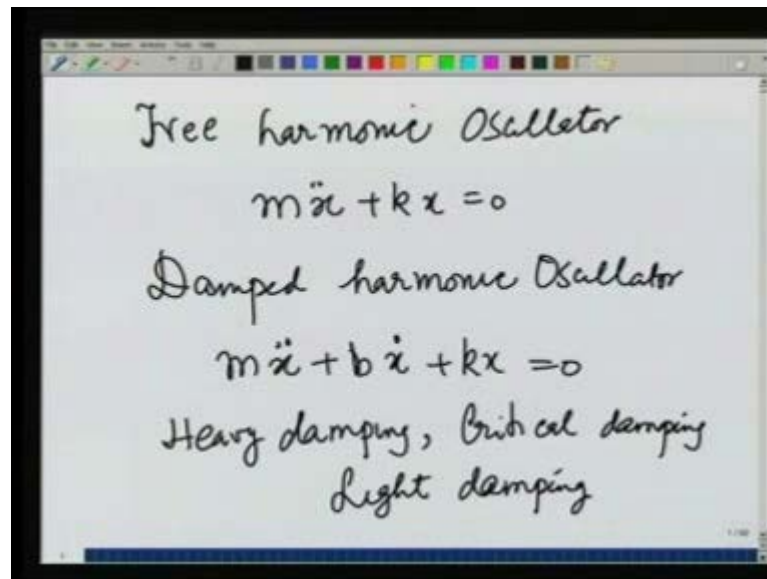 Free harmonic Oscillator
mẍ + kx = 0
Damped harmonic Oscillator
mẍ + bẋ + kx = 0
Heavy damping, Critical damping
Light damping